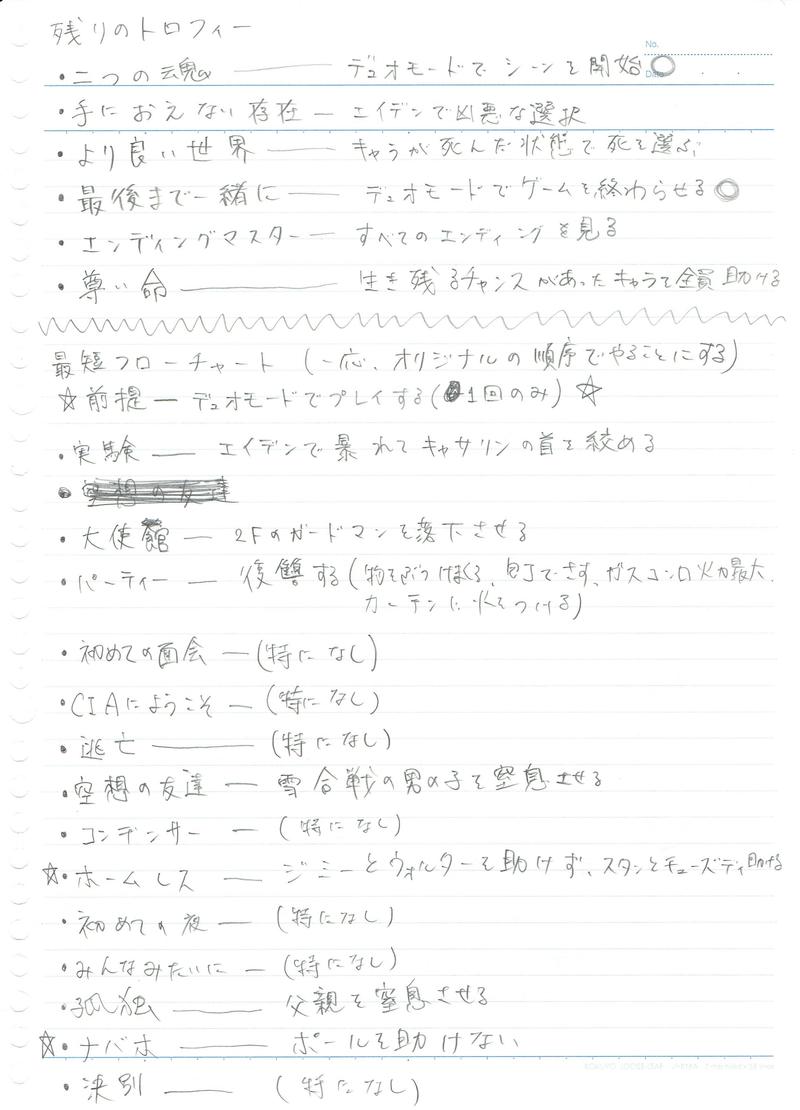 残りのトロフィー
No.
Date
・二つの魂 ―― デュオモードでシーンを開始 ◯
・手におえない存在 ― エイデンで凶悪な選択
・より良い世界 ―― キャラが死んだ状態で死を選ぶ
・最後まで一緒に ―― デュオモードでゲームを終わらせる ◯
・エンディングマスター ― すべてのエンディングを見る
・尊い命 ―――― 生き残るチャンスがあったキャラを全員助ける
最短フローチャート (一応、オリジナルの順序でやることにする)
☆前提 ― デュオモードでプレイする(1回のみ) ☆
・実験 ― エイデンで暴れてキャサリンの首を絞める
・空想の友達
・大使館 ― 2Fのガードマンを落下させる
・パーティー ― 復讐する(物をぶつけまくる、包丁でさす、ガスコンロ火力最大、
カーテンに火をつける)
・初めての面会 ― (特になし)
・CIAにようこそ ― (特になし)
・逃亡 ――― (特になし)
・空想の友達 ― 雪合戦の男の子を窒息させる
・コンデンサー ― (特になし)
☆・ホームレス ― ジミーとウォルターを助けず、スタンとチューズディ助ける
・初めての夜 ― (特になし)
・みんなみたいに ― (特になし)
・孤独 ――― 父親を窒息させる
☆・ナバホ ――― ポールを助けない
・決別 ―― (特になし)